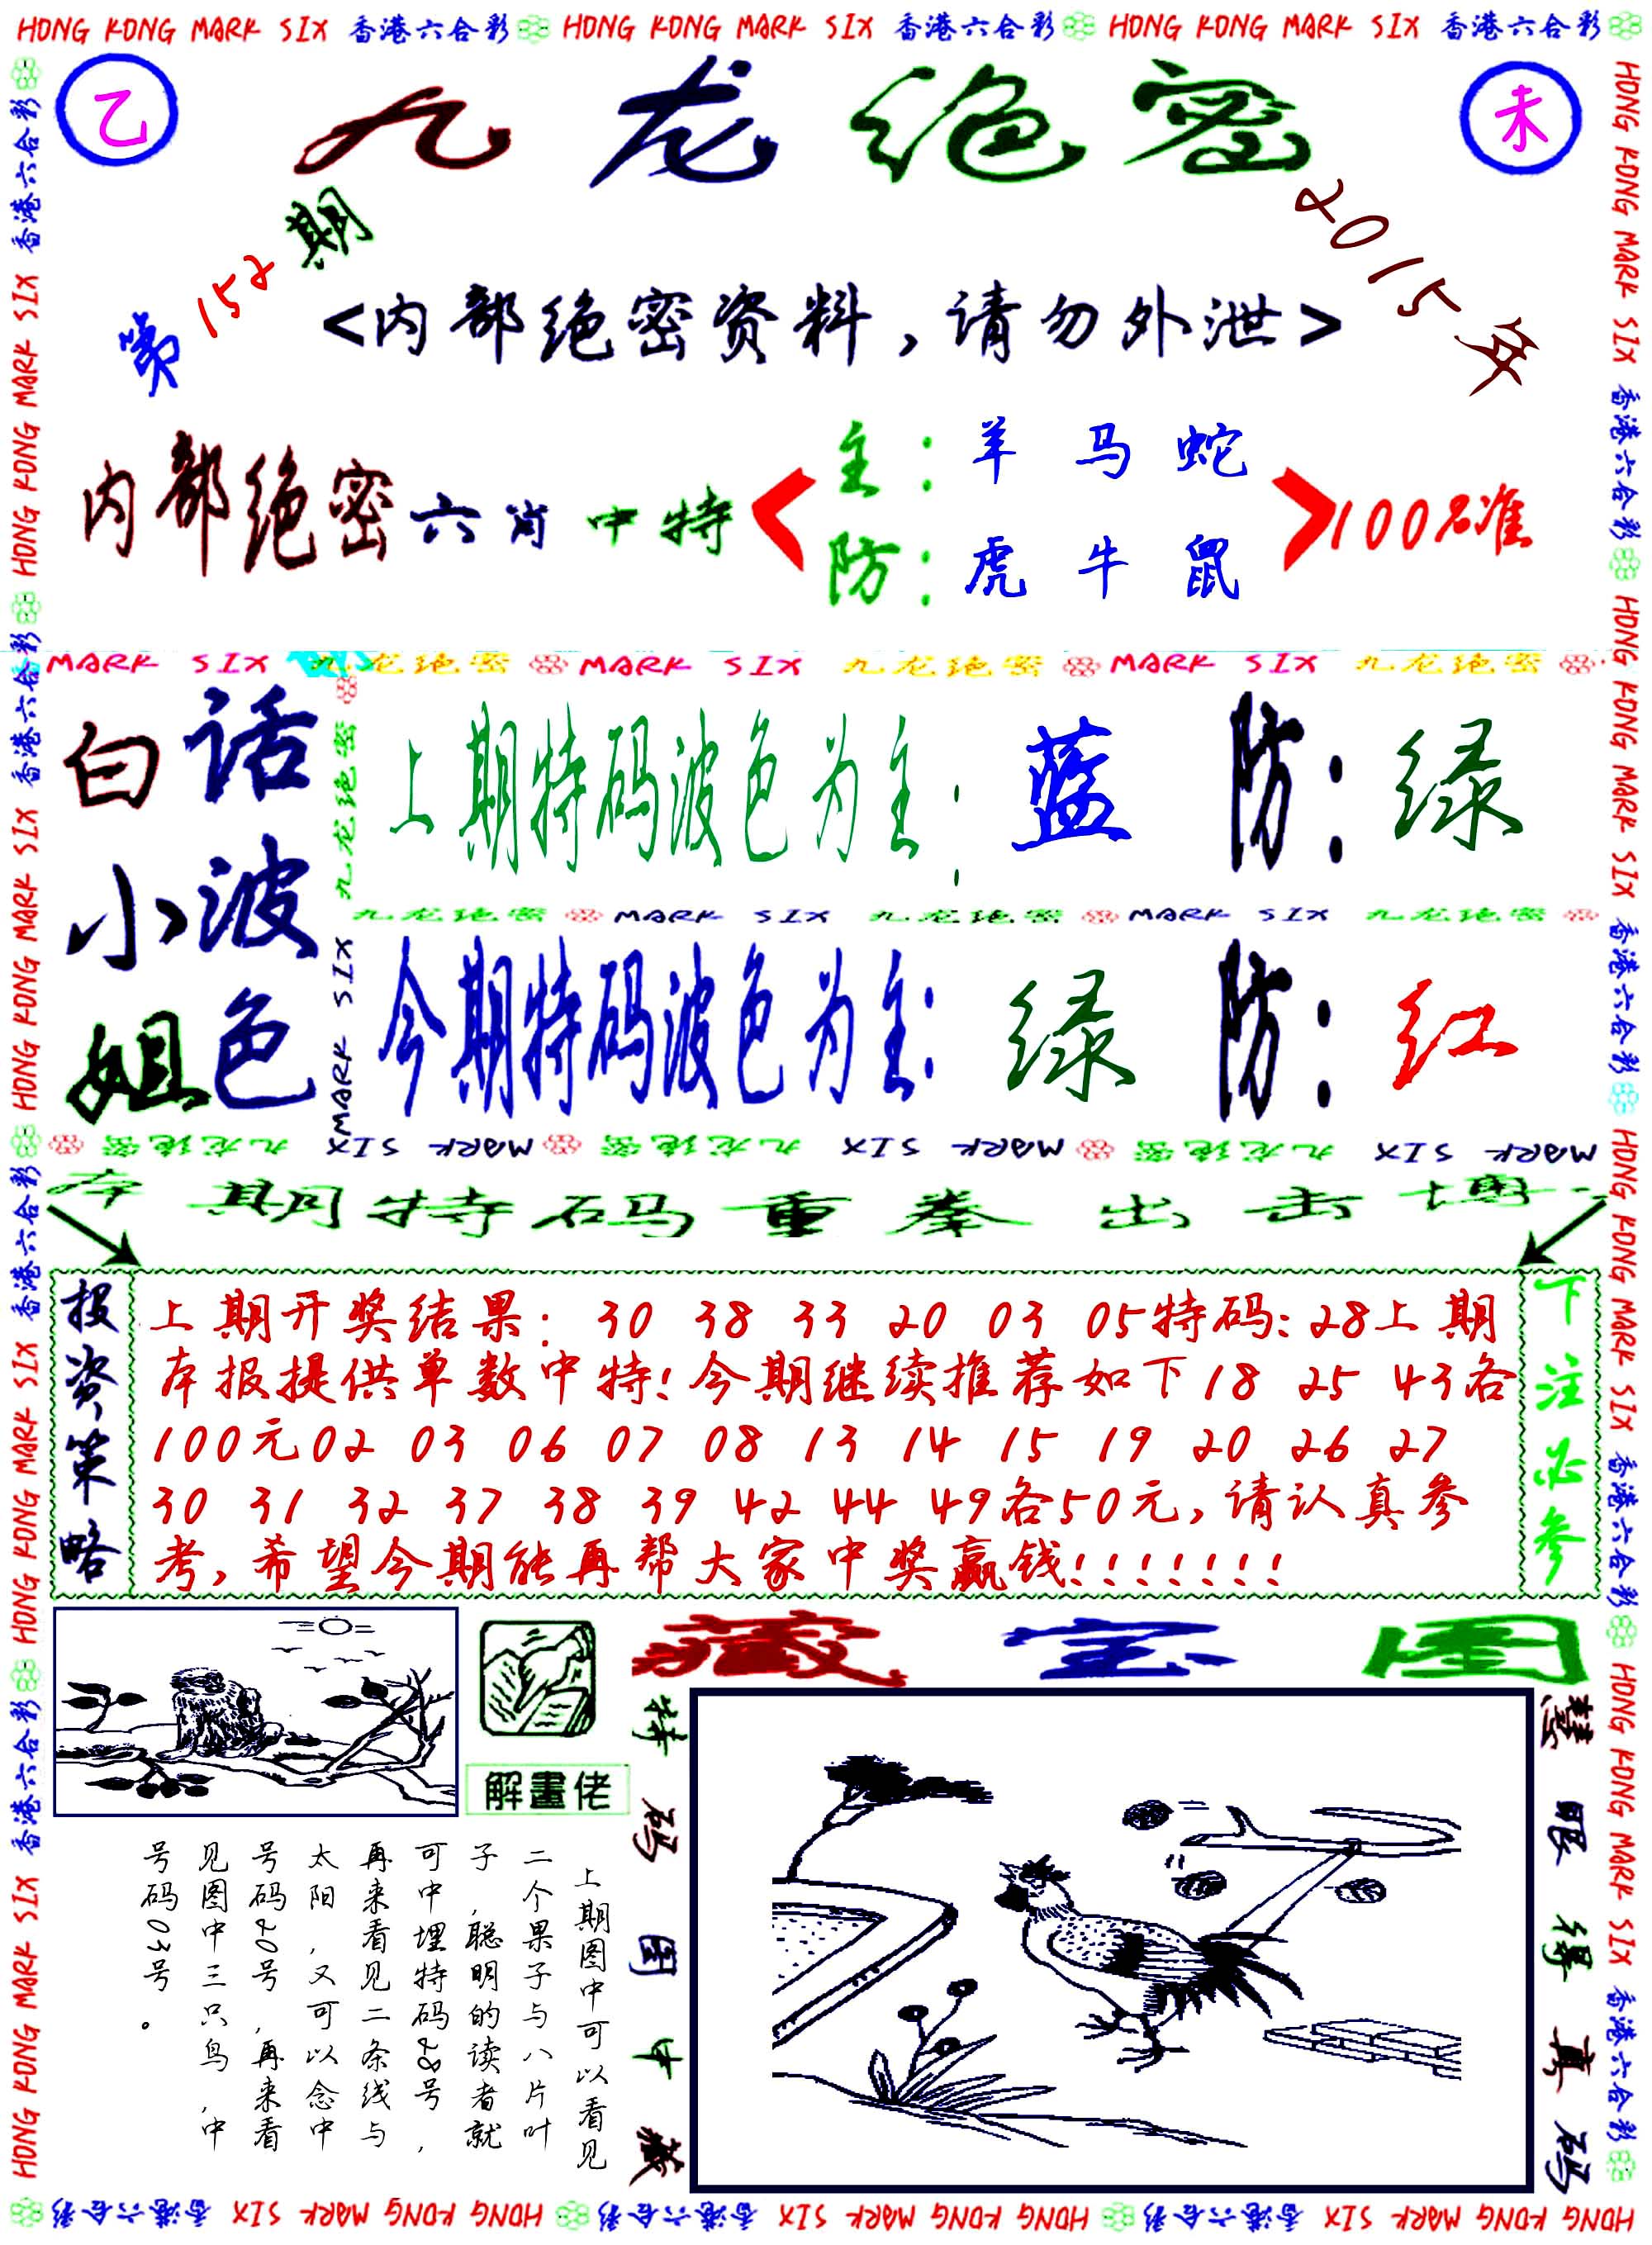 HONG KONG MARK SIX 香港六合彩 HONG KONG MARK SIX 香港六合彩 HONG KONG MARK SIX 香港六合彩
乙 九龙绝密 未
第152期 2015年
<内部绝密资料,请勿外泄>
内部绝密六肖中特 < 主:羊 马 蛇 > 100%准
防:虎 牛 鼠
MARK SIX 九龙绝密 MARK SIX 九龙绝密 MARK SIX 九龙绝密
白话
小波
姐色
九龙绝密 九龙绝密
MARK SIX MARK SIX
上期特码波色为主:蓝 防:绿
九龙绝密 MARK SIX 九龙绝密 MARK SIX 九龙绝密
今期特码波色为主:绿 防:红
MARK SIX 九龙绝密 MARK SIX 九龙绝密 MARK SIX 九龙绝密
本期特码重拳出击博
投资策略
上期开奖结果:30 38 33 20 03 05特码:28上期
本报提供单数中特!今期继续推荐如下18 25 43各
100元02 03 06 07 08 13 14 15 19 20 26 27
30 31 32 37 38 39 42 44 49各50元,请认真参
考,希望今期能再帮大家中奖赢钱!!!!!!!
下注必参
解畫佬
藏宝图
上期图中可以看见
二个果子与八片叶
子,聪明的读者就
可中埋特码28号,
再来看见二条线与
太阳,又可以念中
号码20号,再来看
见图中三只鸟,中
号码03号。
特码图中藏
慧眼得真码
HONG KONG MARK SIX 香港六合彩 HONG KONG MARK SIX 香港六合彩 HONG KONG MARK SIX 香港六合彩 HONG KONG MARK SIX 香港六合彩
HONG KONG MARK SIX 香港六合彩 HONG KONG MARK SIX 香港六合彩 HONG KONG MARK SIX 香港六合彩 HONG KONG MARK SIX 香港六合彩
HONG KONG MARK SIX 香港六合彩 HONG KONG MARK SIX 香港六合彩 HONG KONG MARK SIX 香港六合彩